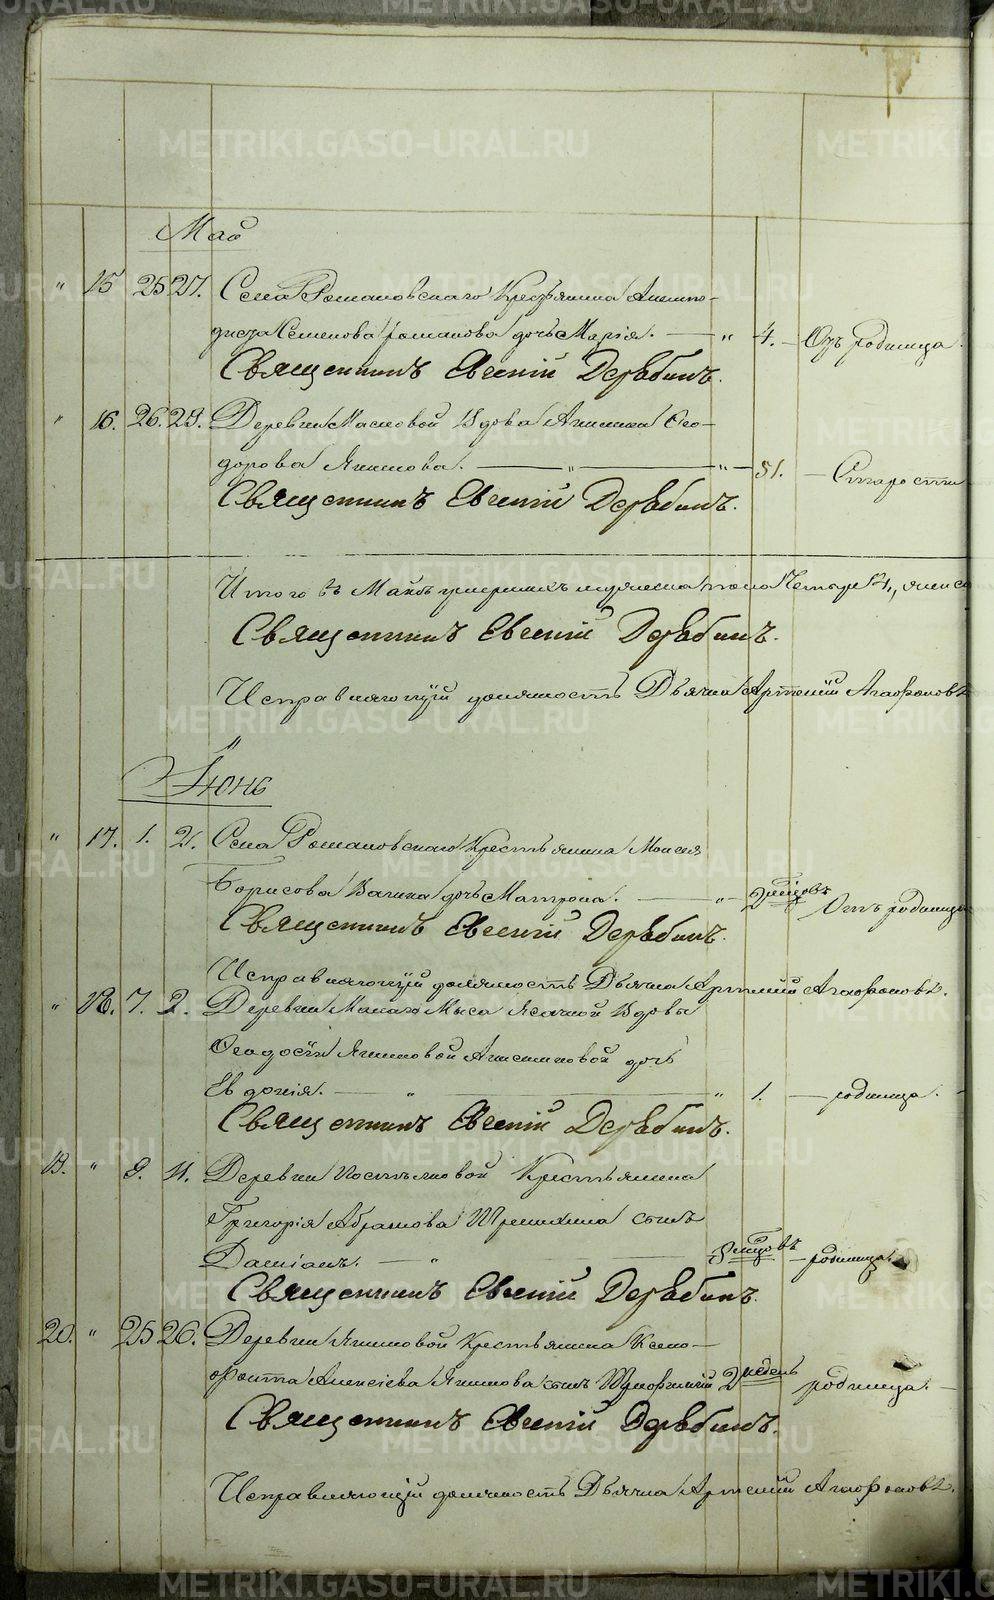 METRIKI.GASO-URAL.RU
Май
" 15 25 27. Села Романовскаго Крестьянина Анемпо-
диста Семенова Романова дочь Марія. — " 4. — Отъ родимца.
Священникъ Евгеній Дерябинъ.
" 16. 26. 29. Деревни Масловой Вдова Ѳео-
дорова Якимова. — " — " — 51. — Старости
Священникъ Евгеній Дерябинъ.
Итого въ Маѣ умершихъ мужеска пола Четыре 4,, женск
Священникъ Евгеній Дерябинъ.
Исправляющій должность Дьячка Артемій Агафоновъ
Іюнь
" 17. 1. 2. Села Романовскаго Крестьянина Моисея
Борисова Вагина дочь Матрона. — " 2 мѣсцовъ Отъ родимца
Священникъ Евгеній Дерябинъ.
Исправляющій должность Дьячка Артемій Агафоновъ.
" 18. 7. 2. Деревни Мыса Ясачной Вдовы
Ѳеодосіи Якимовой дочь
Евдокія. — " — " 1. — родимца. —
Священникъ Евгеній Дерябинъ.
19. " 9. 11. Деревни Крестьянина
Григорія Абрамова сынъ
Даміанъ. — " — 3 мѣсцовъ — родимца.
Священникъ Евгеній Дерябинъ.
20. " 25 26. Деревни Якимовой Крестьянина Ксено-
фонта Алексіева Якимова сынъ 2 недель родимца. —
Священникъ Евгеній Дерябинъ.
Исправляющій должность Дьячка Артемій Агафоновъ.